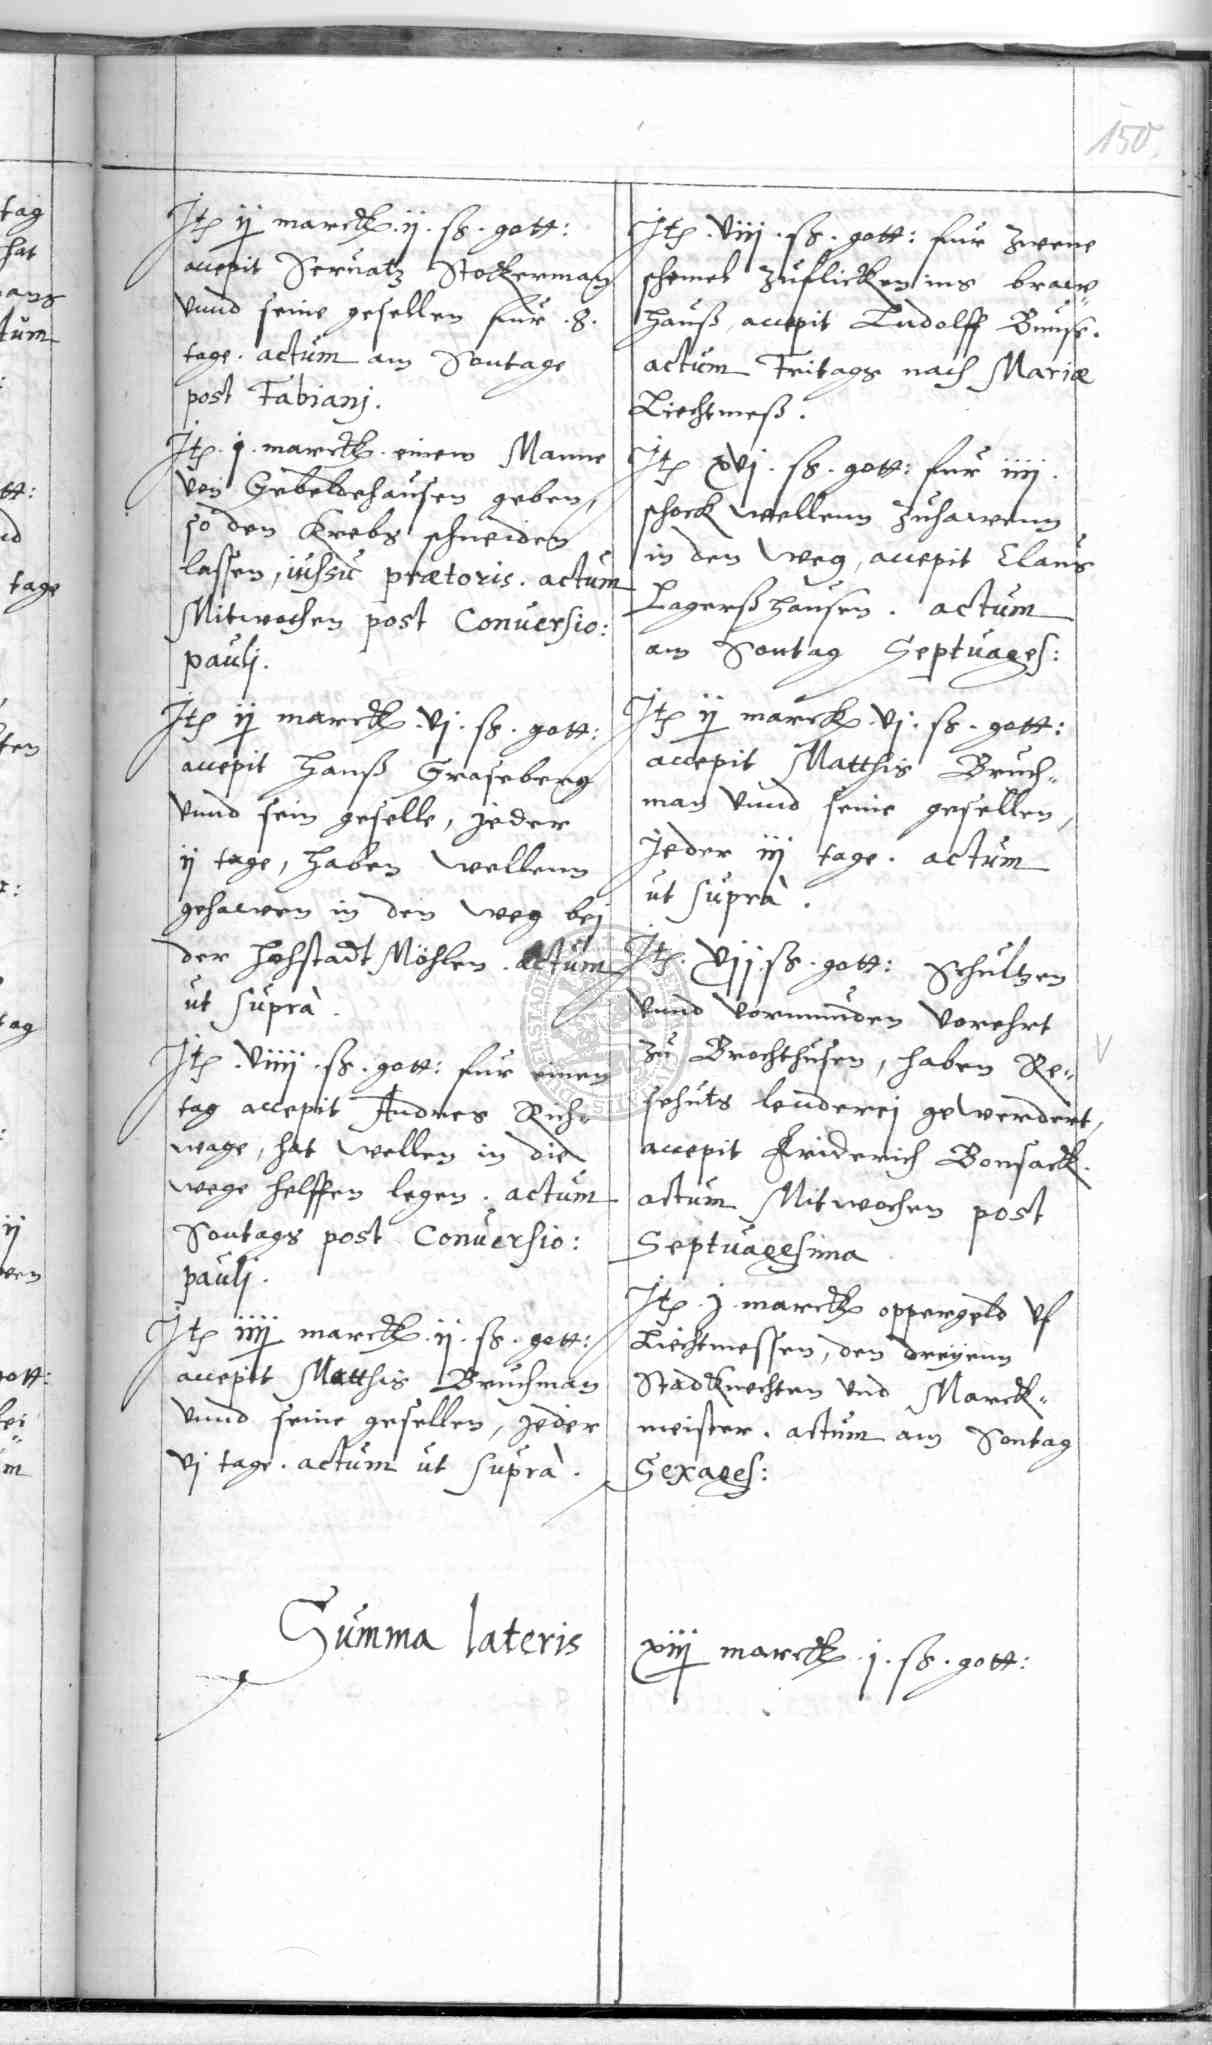 150.
Jtē ij marck .ij. ß. gott:
accepit Servatz Stockerman
vnnd seine gesellen für .8.
tage. actum am Sontage
post Fabianj.
Jtē .j. marck. einem Manne
von Gebeldehausen geben,
so den Krebs schneiden
lassen, iussu prætoris. actum
Mitwochen post Conuersio:
paulj.
Jtē ij marck .vj. ß. gott:
accepit Hanß Graseberg
vnnd sein geselle, jeder
ij tage, haben wellenn
gehawen in den weg bej
der Hohstadt Möhlen. actum
ut suprà.
Jtē .viiij. ß. gott: für einen
tag accepit Andres Rich=
wage, hat wellen in die
wege helffen legen. actum
Sontags post Conuersio:
paulj.
Jtē iiij marck .ij. ß. gott:
accepit Matthis Bruchman
vnnd seine gesellen, jeder
vj tage. actum ut suprà.
Jtē .viij. ß. gott: für zwene
schemel zuflicken ins braw=
hauß, accepit Ludolff Bunse.
actum Fritags nach Mariæ
Liechtmeß.
Jtē xvj. ß. gott: für iiij.
schock wellenn zuhawenn
in den weg, accepit Claus
Lagerßhausen. actum
am Sontag Septuages:
Jtē ij marck .vj. ß. gott:
accepit Matthis Bruch=
man vnnd seine gesellen,
Jeder iij tage. actum
ut suprà.
Jtē. vij. ß. gott: Schultzen
vnnd vormunden vorehrt
zu Brochthusen, haben Re=
schuts lenderej gewerdert,
accepit Friderich Bonsack.
actum Mitwochen post
Septuagesima
Jtē .j. marck oppergeld vf
Liechtmessen, den dreyenn
Stadknechten vnd Marck=
meister. actum am Sontag
Sexages:
Summa lateris xiij marck .j. ß. gott: